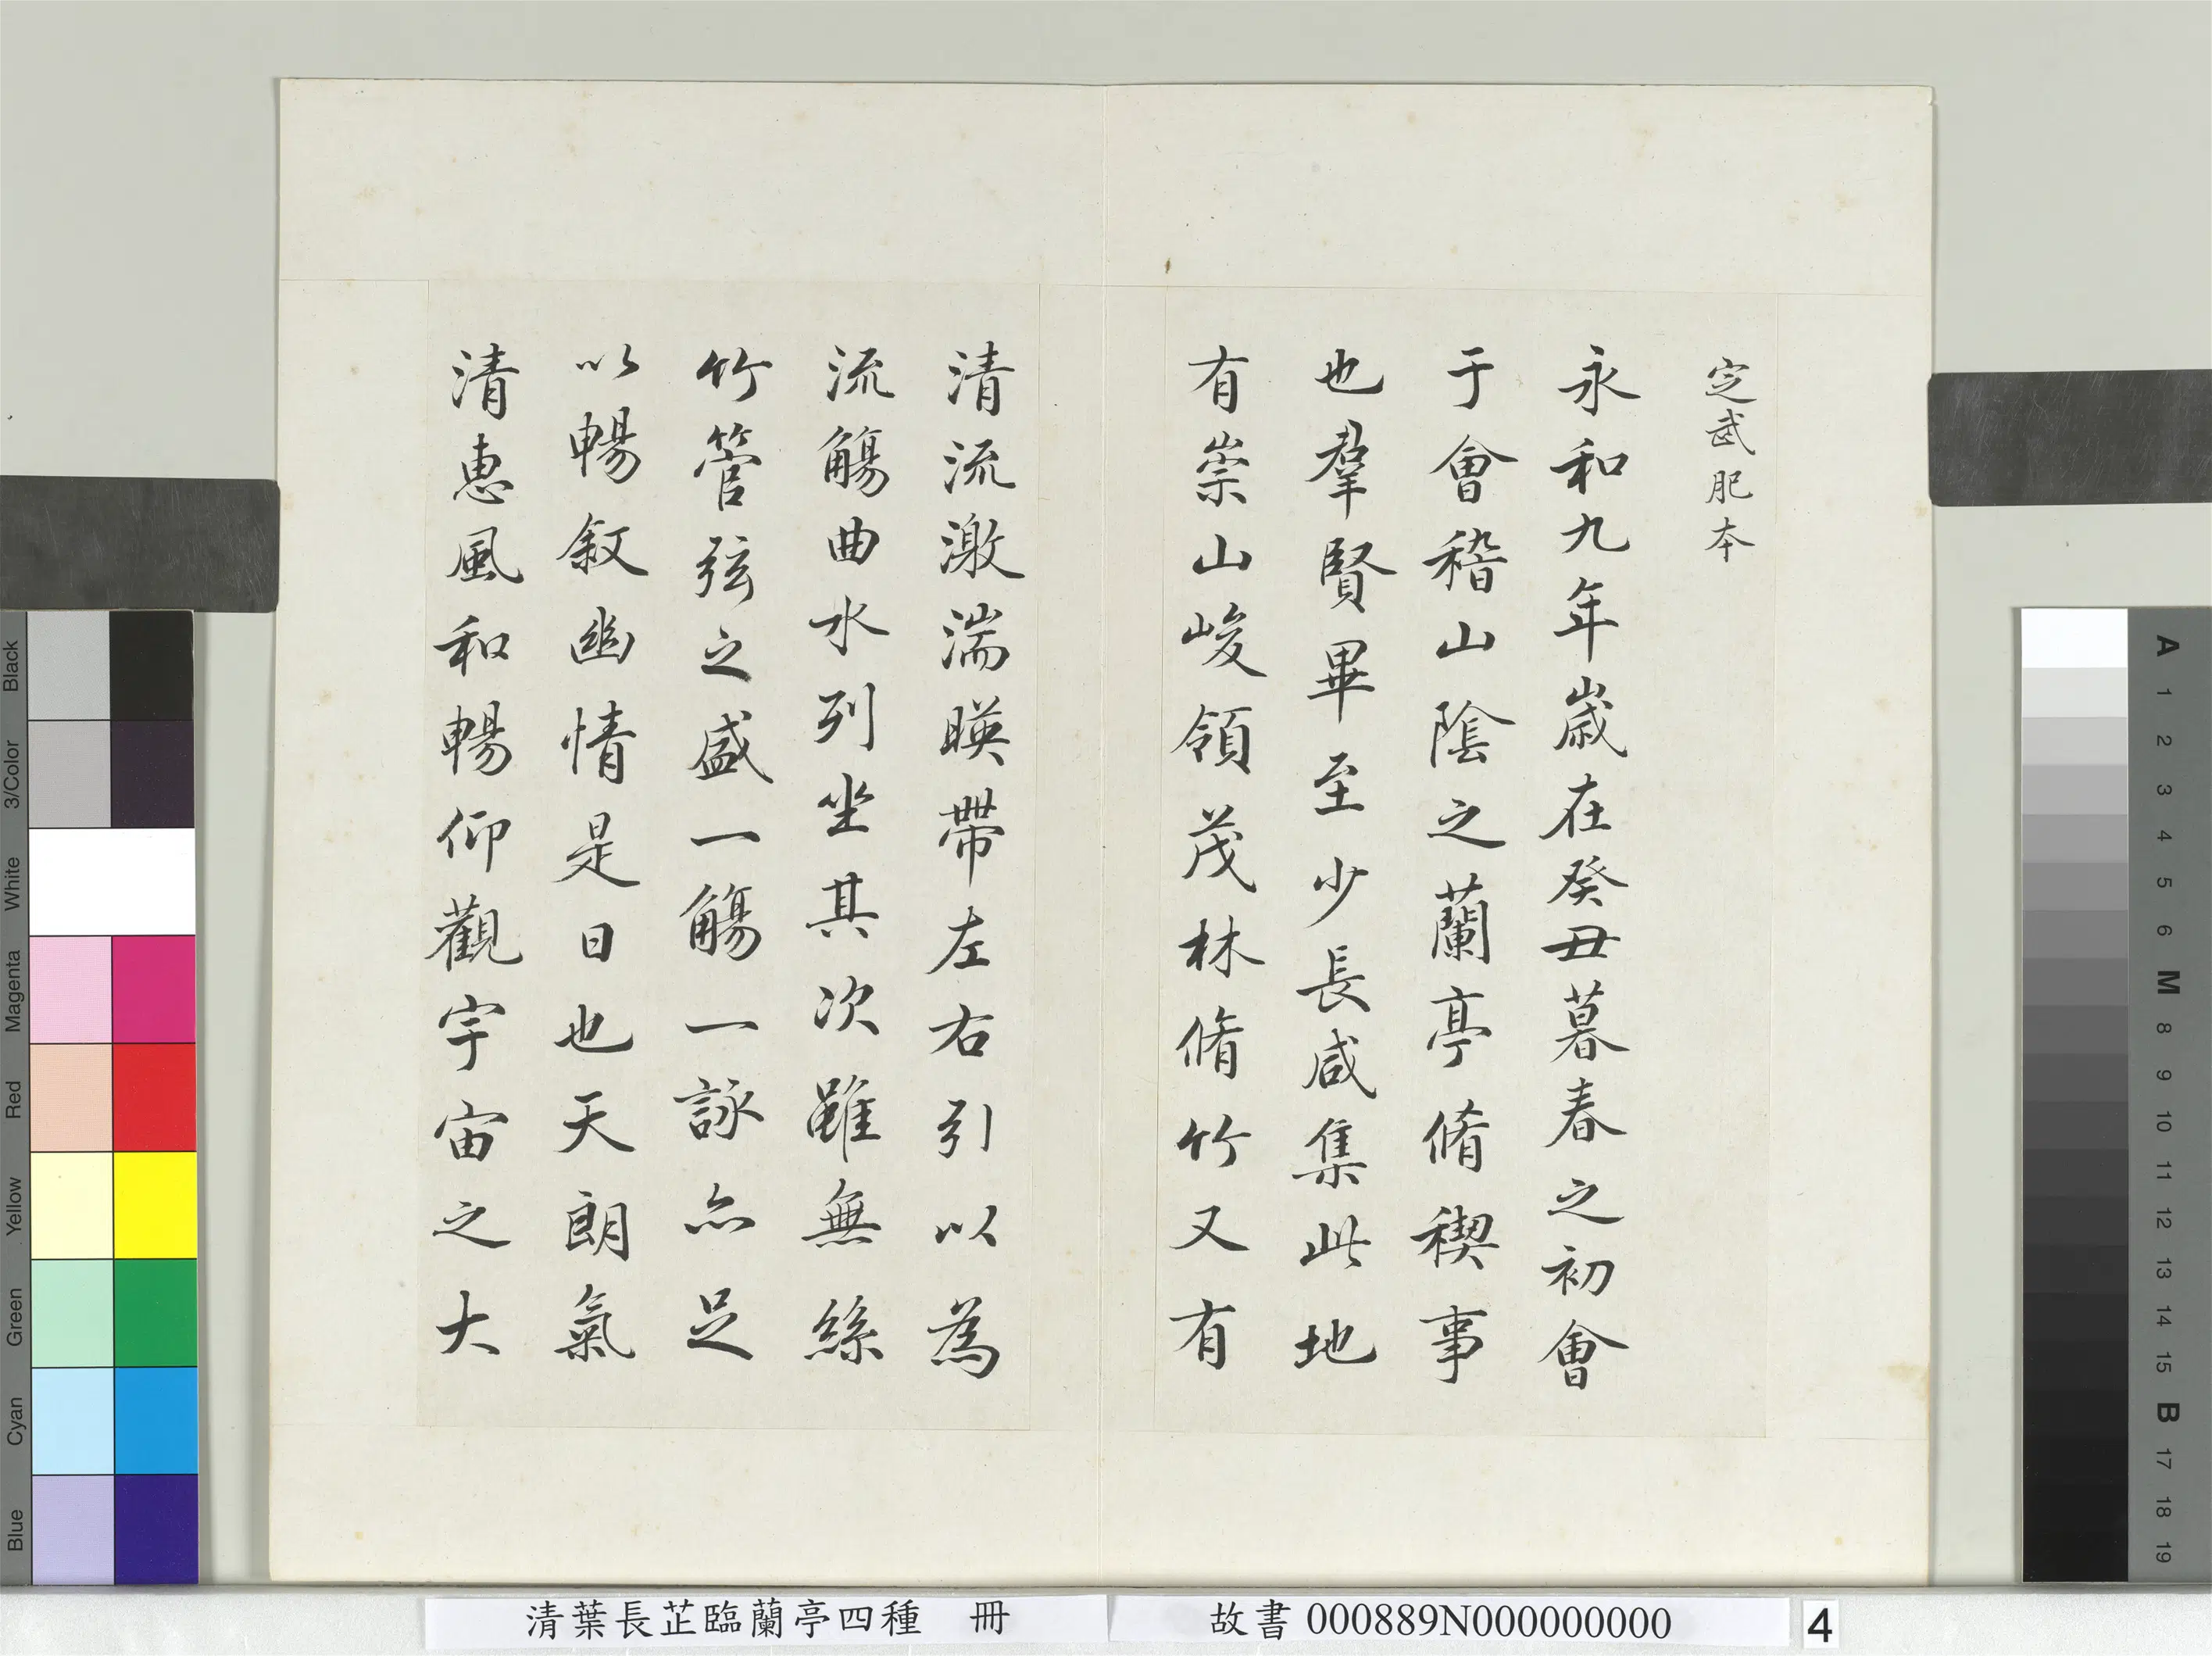 定武肥本
永和九年歲在癸丑暮春之初會
于會稽山陰之蘭亭脩禊事
也羣賢畢至少長咸集此地
有崇山峻領茂林脩竹又有
清流激湍暎帶左右引以為
流觴曲水列坐其次雖無絲
竹管弦之盛一觴一詠亦足
以暢敘幽情是日也天朗氣
清惠風和暢仰觀宇宙之大
Black
3/Color
White
Magenta
Red
Yellow
Green
Cyan
Blue
A
1
2
3
4
5
6
M
8
9
10
11
12
13
14
15
B
17
18
19
清葉長芷臨蘭亭四種 冊
故書 000889N000000000
4